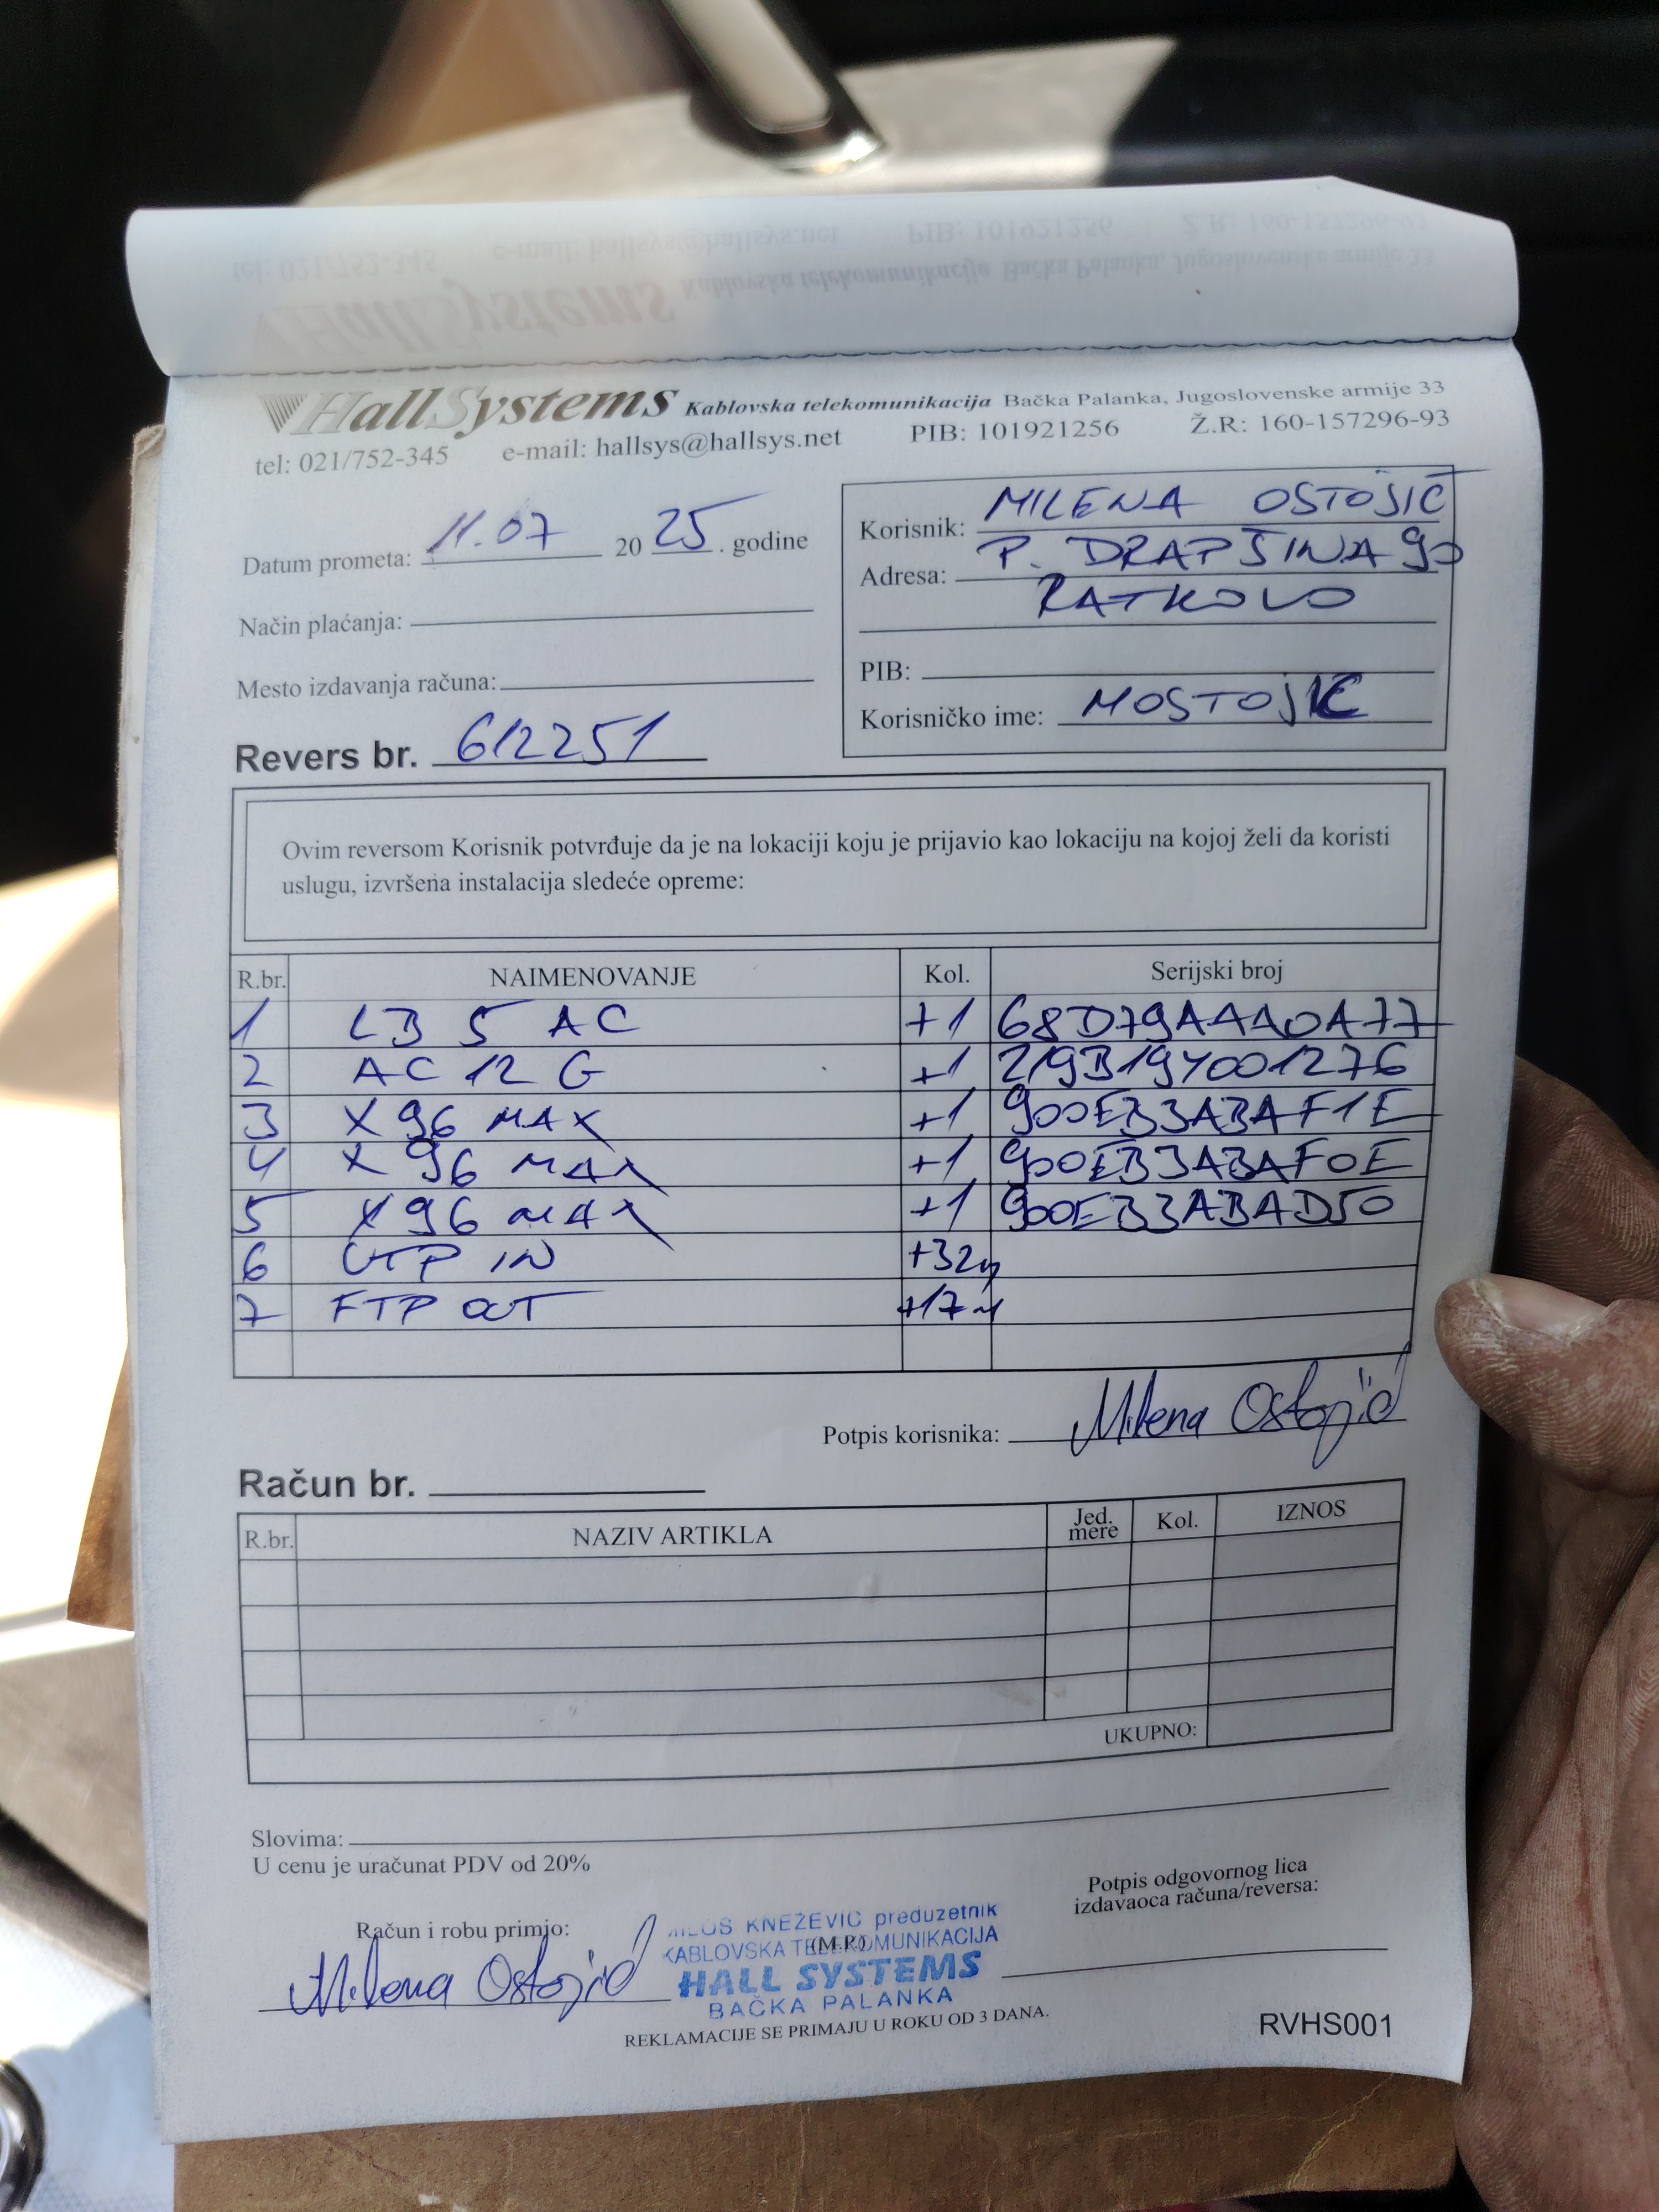 HallSystems Kablovska telekomunikacija Bačka Palanka, Jugoslovenske armije 33
tel: 021/752-345 e-mail: hallsys@hallsys.net PIB: 101921256 Ž.R: 160-157296-93
Datum prometa: 11.07 2025. godine
Način plaćanja:
Mesto izdavanja računa:
Revers br. 612251
Korisnik: MILENA OSTOJIĆ
Adresa: P. DRAPŠINA 90
RATKOVO
PIB:
Korisničko ime: MOSTOJIC
Ovim reversom Korisnik potvrđuje da je na lokaciji koju je prijavio kao lokaciju na kojoj želi da koristi
uslugu, izvršena instalacija sledeće opreme:
R.br. NAIMENOVANJE Kol. Serijski broj
1 LB 5 AC +1 68D79AAA0A77
2 AC 12 G +1 219B19Y001276
3 X96 MAX +1 900EB3ABAF1E
4 X96 MAX +1 900EB3ABAF0E
5 X96 MAX +1 900EB3ABAD50
6 UTP IN +32m
7 FTP OUT +17m
Potpis korisnika: Milena Ostojić
Račun br.
R.br. NAZIV ARTIKLA Jed. mere Kol. IZNOS
UKUPNO:
Slovima:
U cenu je uračunat PDV od 20%
Račun i robu primjo:
Milena Ostojić
MILOŠ KNEŽEVIĆ preduzetnik
(M.P.)
KABLOVSKA TELEKOMUNIKACIJA
HALL SYSTEMS
BAČKA PALANKA
Potpis odgovornog lica
izdavaoca računa/reversa:
REKLAMACIJE SE PRIMAJU U ROKU OD 3 DANA.
RVHS001